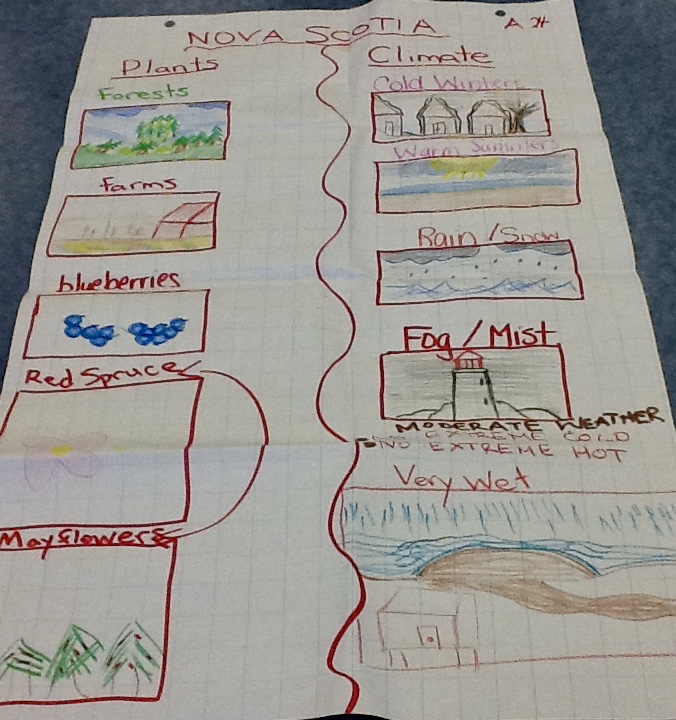 NOVA SCOTIA
Plants
Forests
farms
blueberries
Red Spruce
Mayflowers
Climate
Cold Winters
Warm Summers
Rain / Snow
Fog / Mist
MODERATE WEATHER
NO EXTREME COLD
NO EXTREME HOT
Very Wet